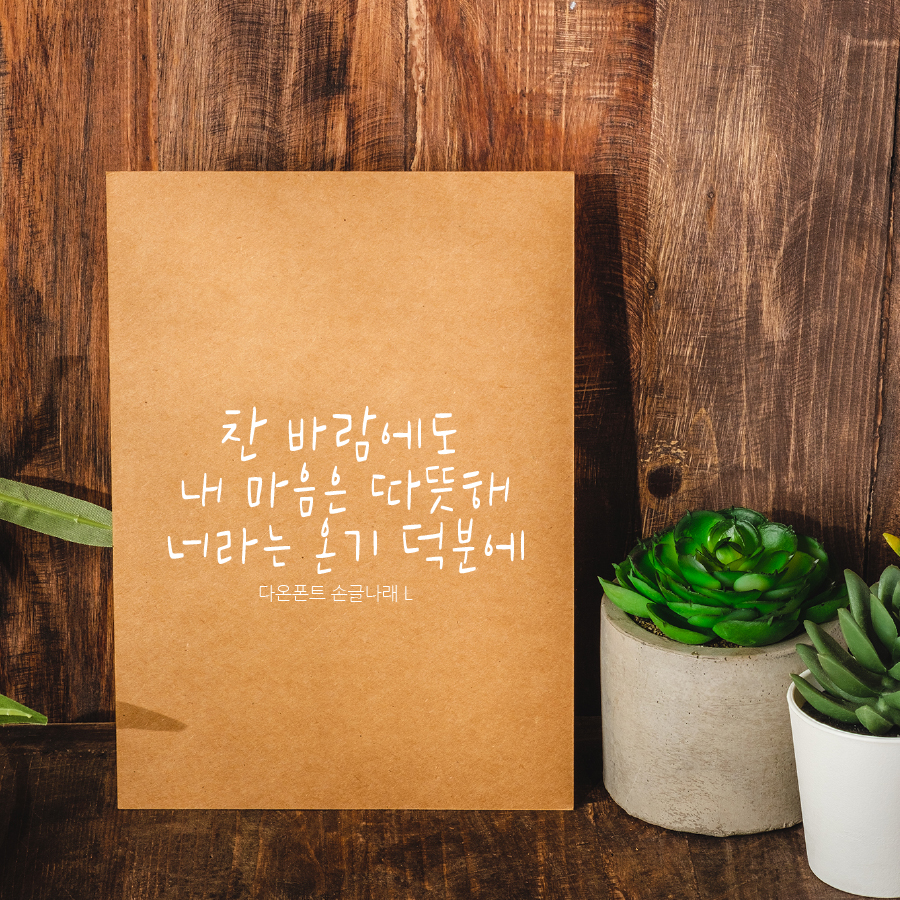 찬 바람에도
내 마음은 따뜻해
너라는 온기 덕분에
다온폰트 손글나래 L